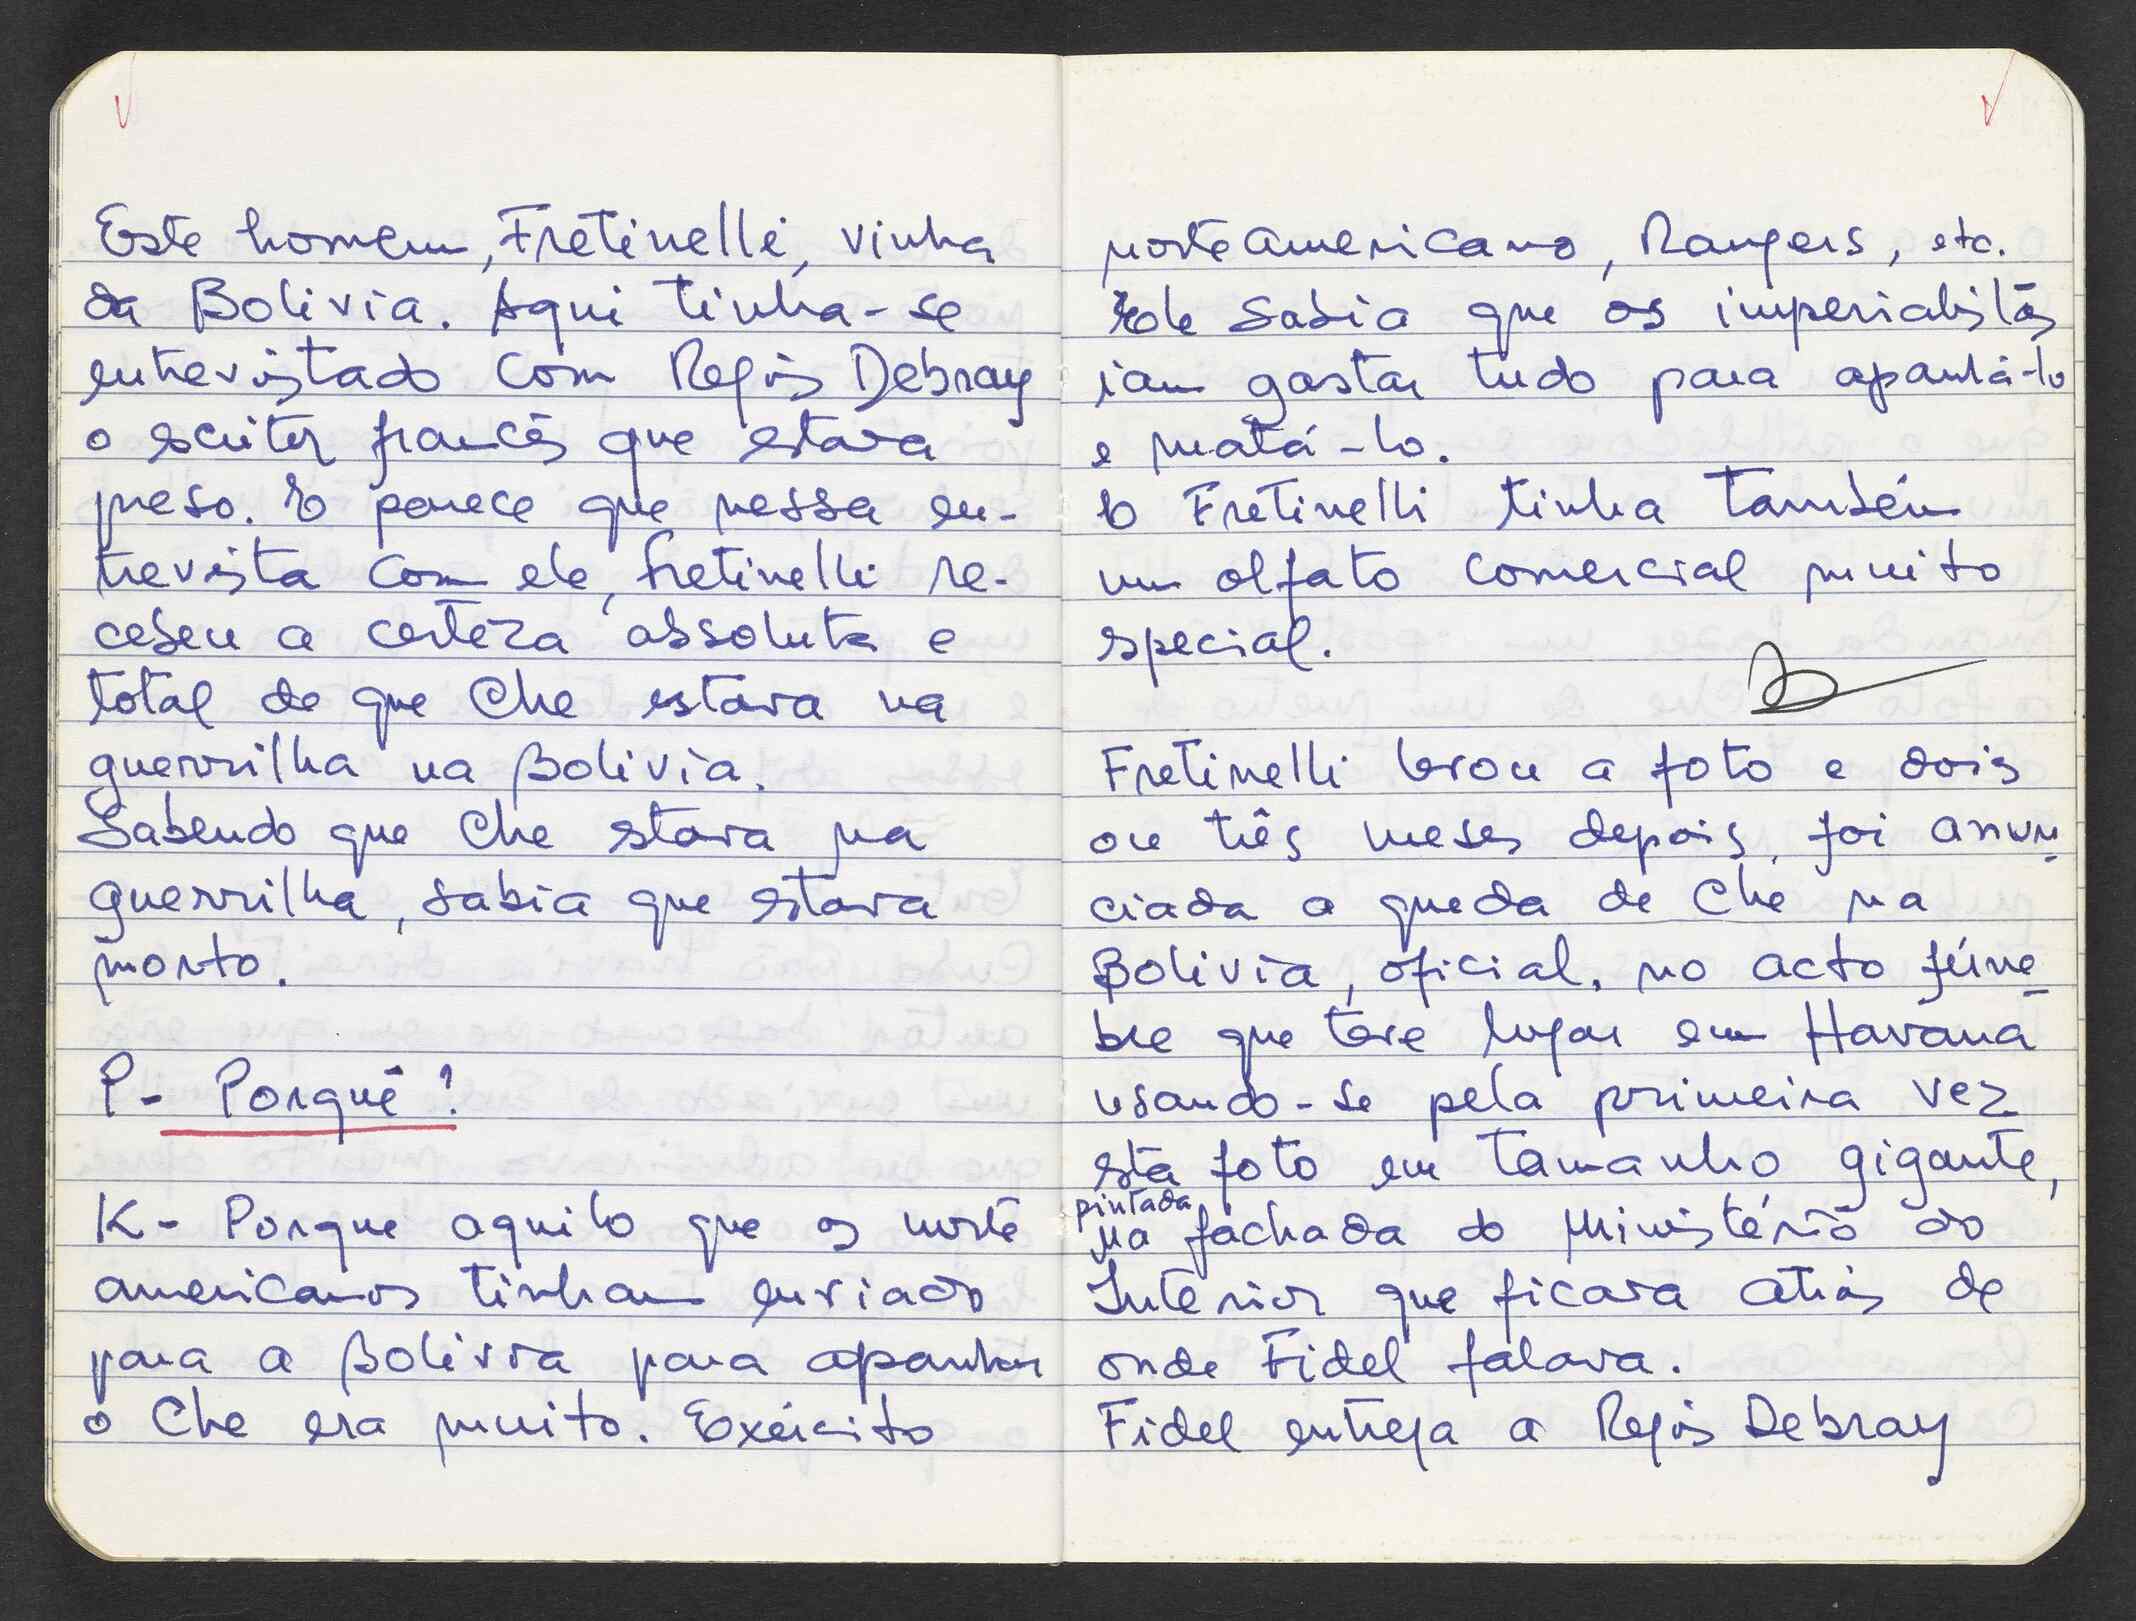 Este homem, Fretinelli, vinha
da Bolivia. Aqui tinha-se
entrevistado com Regis Debray
o escritor francês que estava
preso. E parece que nessa en-
trevista com ele, Fretinelli re-
cebeu a certeza absoluta e
total de que Che estava na
guerrilha na Bolivia.
Sabendo que Che estava na
guerrilha, sabia que estava
morto.
P- Porquê?
K- Porque aquilo que os norte
americanos tinham enviado
para a Bolivia para apanhar
o Che era muito. Exército
norteamericano, Rangers, etc.
Ele sabia que os imperialistas
iam gastar tudo para apanhá-lo
e matá-lo.
E Fretinelli tinha também
um olfato comercial muito
special.
Fretinelli levou a foto e dois
ou três meses depois, foi anun
ciada a queda de Che na
Bolivia, oficial, no acto fúne
bre que teve lugar em Havana
usando-se pela primeira vez
esta foto em tamanho gigante,
pintada
na fachada do Ministério do
Interior que ficava atrás de
onde Fidel falava.
Fidel entrega a Regis Debray